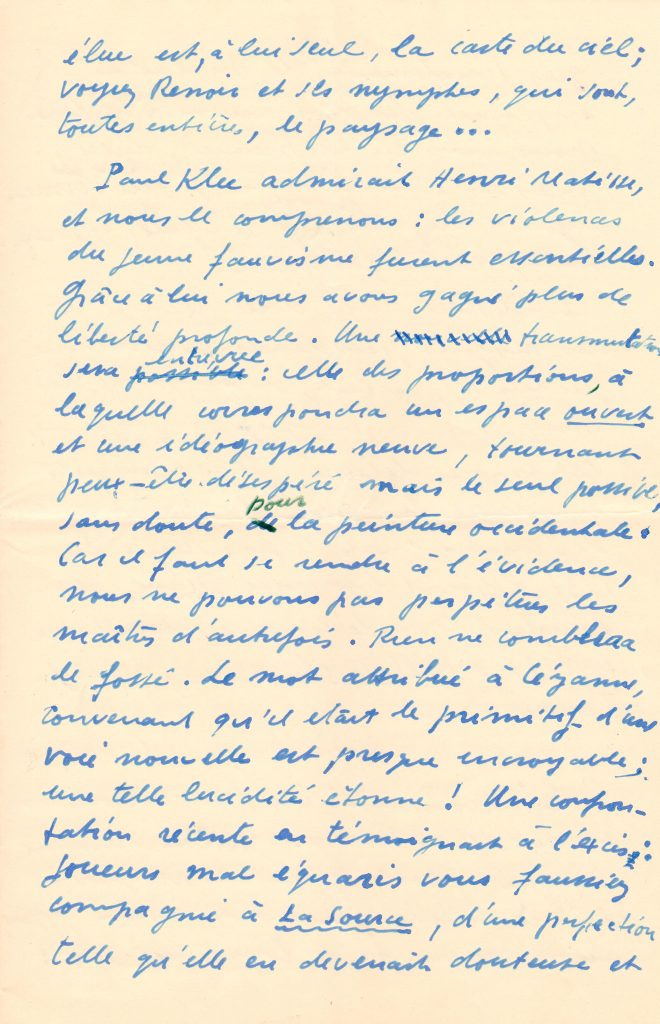 élue est, à lui seul, la carte du ciel;
voyez Renoir et ses nymphes, qui sont,
toutes entières, le paysage...
Paul Klee admirait Henri Matisse,
et nous le comprenons : les violences
du jeune fauvisme furent essentielles.
Grâce à lui nous avons gagné plus de
liberté profonde. Une transmutation
sera entrevue : celle des proportions, à
laquelle correspondra un espace ouvert
et une idéographie neuve, tournant
peut-être désespéré mais le seul possible,
sans doute, pour la peinture occidentale.
Car il faut se rendre à l'évidence,
nous ne pouvons pas perpétuer les
maîtres d'autrefois. Rien ne comblera
le fossé. Le mot attribué à Cézanne,
convenant qu'il était le primitif d'une
voie nouvelle est presque incroyable;
une telle lucidité étonne ! Une confron-
tation récente en témoignait à l'excès :
joueurs mal équarris vous faussiez
compagnie à La Source, d'une perfection
telle qu'elle en devenait douteuse et